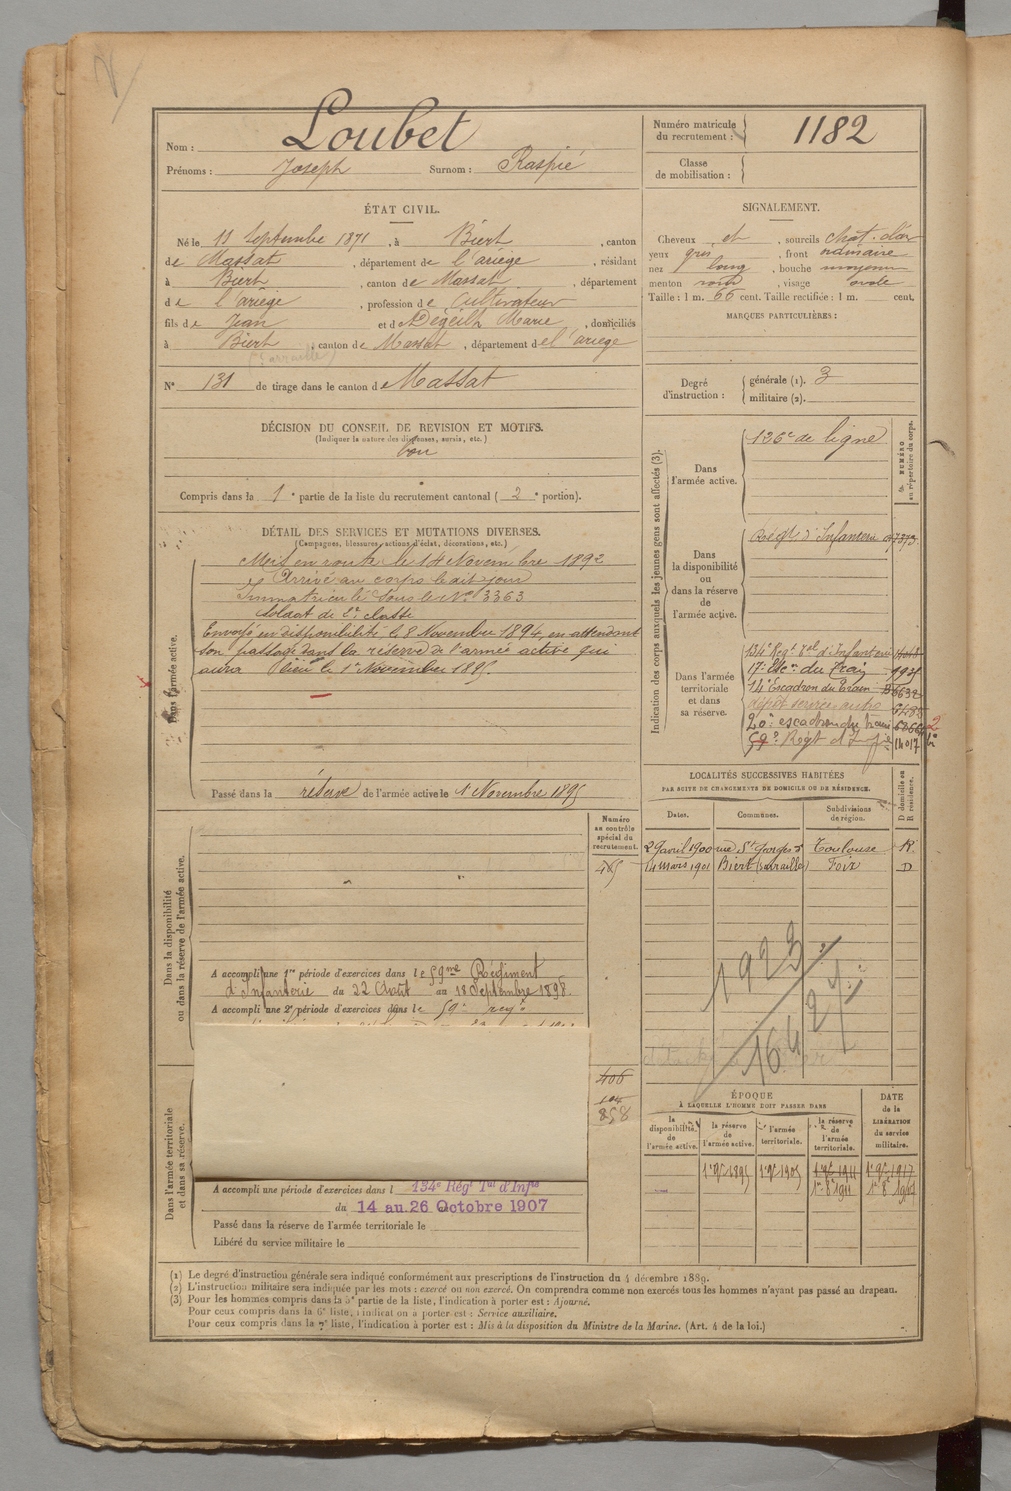 Nom : Loubet
Prénoms : Joseph Surnom : Raspié
Numéro matricule du recrutement : 1182
Classe de mobilisation :
ÉTAT CIVIL.
Né le 11 Septembre 1871, à Biert, canton
de Massat, département de l'ariège, résidant
à Biert, canton de Massat, département
de l'ariège, profession de Cultivateur
fils de Jean et de Dégeilh Marie, domiciliés
à Biert, canton de Massat, département de l'ariège
(Sarraillé)
N° 131 de tirage dans le canton de Massat
SIGNALEMENT.
Cheveux et, sourcils chat. clair
yeux gris, front ordinaire
nez long, bouche moyenne
menton rond, visage ovale
Taille : 1 m. 66 cent. Taille rectifiée : 1 m. cent.
MARQUES PARTICULIÈRES :
Degré d'instruction : générale (1). 3
militaire (2).
DÉCISION DU CONSEIL DE REVISION ET MOTIFS.
(Indiquer la nature des dispenses, sursis, etc.)
bon
Compris dans la 1e partie de la liste du recrutement cantonal (2e portion).
DÉTAIL DES SERVICES ET MUTATIONS DIVERSES.
(Campagnes, blessures, actions d'éclat, décorations, etc.)
Dans l'armée active.
Mis en route le 14 Novembre 1892
Arrivé au corps le dit jour
Immatriculé sous le N° 3363
Soldat de 2e classe
Envoyé en disponibilité le 8 Novembre 1894, en attendant
son passage dans la réserve de l'armée active qui
aura lieu le 1er Novembre 1895
Passé dans la réserve de l'armée active le 1 Novembre 1895
Indication des corps auxquels les jeunes gens sont affectés (3).
NUMÉRO au répertoire du corps.
Dans l'armée active.
136e de ligne
Dans la disponibilité ou dans la réserve de l'armée active.
Régt d'Infanterie
Dans l'armée territoriale et dans sa réserve.
134e Régt Tal d'Infanterie
17e Esc. du Train
14e Escadron du Train
dépôt services auto
20e escadron du train
59e Régt d'Infie 14017
LOCALITÉS SUCCESSIVES HABITÉES
PAR SUITE DE CHANGEMENTS DE DOMICILE OU DE RÉSIDENCE.
Dates. Communes. Subdivisions de région. D domicile ou R résidence.
2 avril 1900 rue St Georges Toulouse R
14 mars 1901 Biert (Sarraillé) Foix D
1923
Numéro au contrôle spécial du recrutement.
Dans la disponibilité ou dans la réserve de l'armée active.
A accompli une 1re période d'exercices dans le 59me Régiment
d'Infanterie du 22 Août au 18 Septembre 1898.
A accompli une 2e période d'exercices dans le 59e reg.
406
104
858
Dans l'armée territoriale et dans sa réserve.
A accompli une période d'exercices dans l 134e Régt Tal d'Infie
du 14 au 26 Octobre 1907
Passé dans la réserve de l'armée territoriale le
Libéré du service militaire le
ÉPOQUE
A LAQUELLE L'HOMME DOIT PASSER DANS
la disponibilité de l'armée active. la réserve de l'armée active. l'armée territoriale. la réserve de l'armée territoriale.
DATE de la LIBÉRATION du service militaire.
1er 9bre 1895 1er 9bre 1905 1er 9bre 1911 1er 9bre 1917
(1) Le degré d'instruction générale sera indiqué conformément aux prescriptions de l'instruction du 4 décembre 1889.
(2) L'instruction militaire sera indiquée par les mots : exercé ou non exercé. On comprendra comme non exercés tous les hommes n'ayant pas passé au drapeau.
(3) Pour les hommes compris dans la 5e partie de la liste, l'indication à porter est : Ajourné.
Pour ceux compris dans la 6e liste, l'indication à porter est : Service auxiliaire.
Pour ceux compris dans la 7e liste, l'indication à porter est : Mis à la disposition du Ministre de la Marine. (Art. 4 de la loi.)